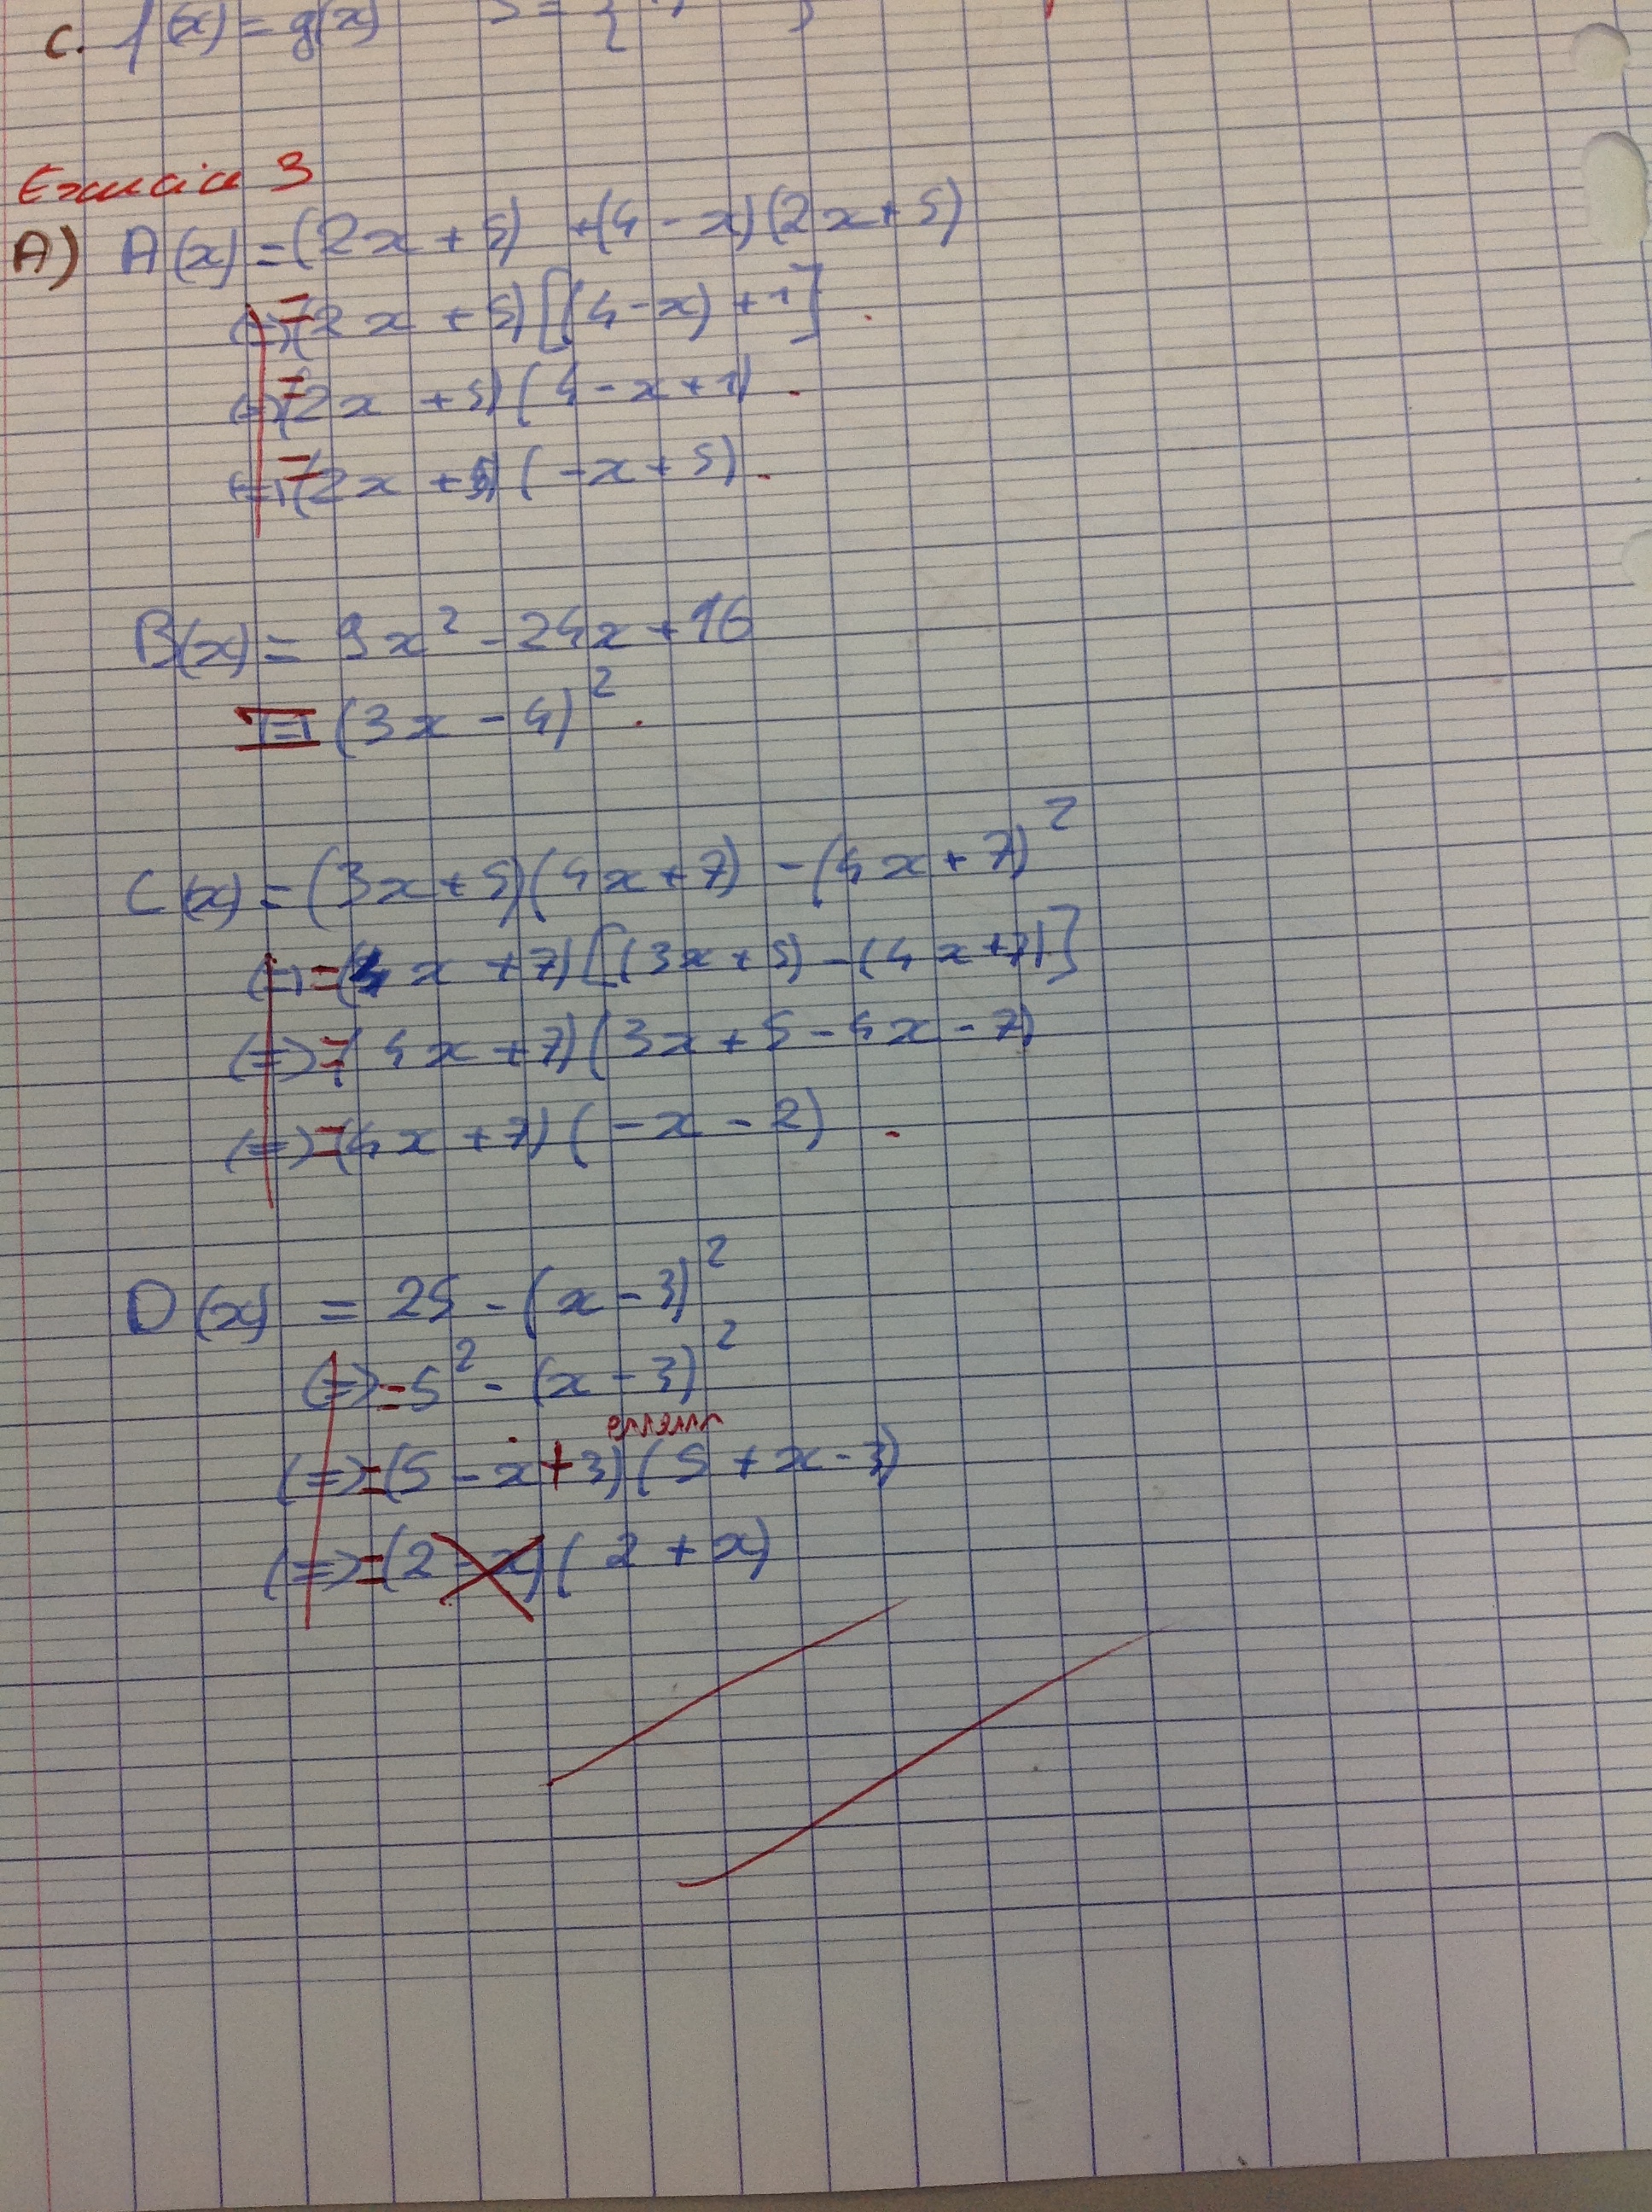 c. f(x) = g(x) S = { }
Exercice 3
A) A(x) = (2x + 5) + (4 - x)(2x + 5)
(=) = (2x + 5) [(4 - x) + 1]
(=) = (2x + 5) (4 - x + 1)
(=) = (2x + 5) (-x + 5)
B(x) = 9x² - 24x + 16
= (3x - 4)²
C(x) = (3x + 5)(4x + 7) - (4x + 7)²
(=) = (4x + 7) [(3x + 5) - (4x + 7)]
(=) = (4x + 7) (3x + 5 - 4x - 7)
(=) = (4x + 7) (-x - 2)
D(x) = 25 - (x - 3)²
(=) = 5² - (x - 3)²
erreur
(=) = (5 - x + 3) (5 + x - 3)
(=) = (2 - x) (2 + x)